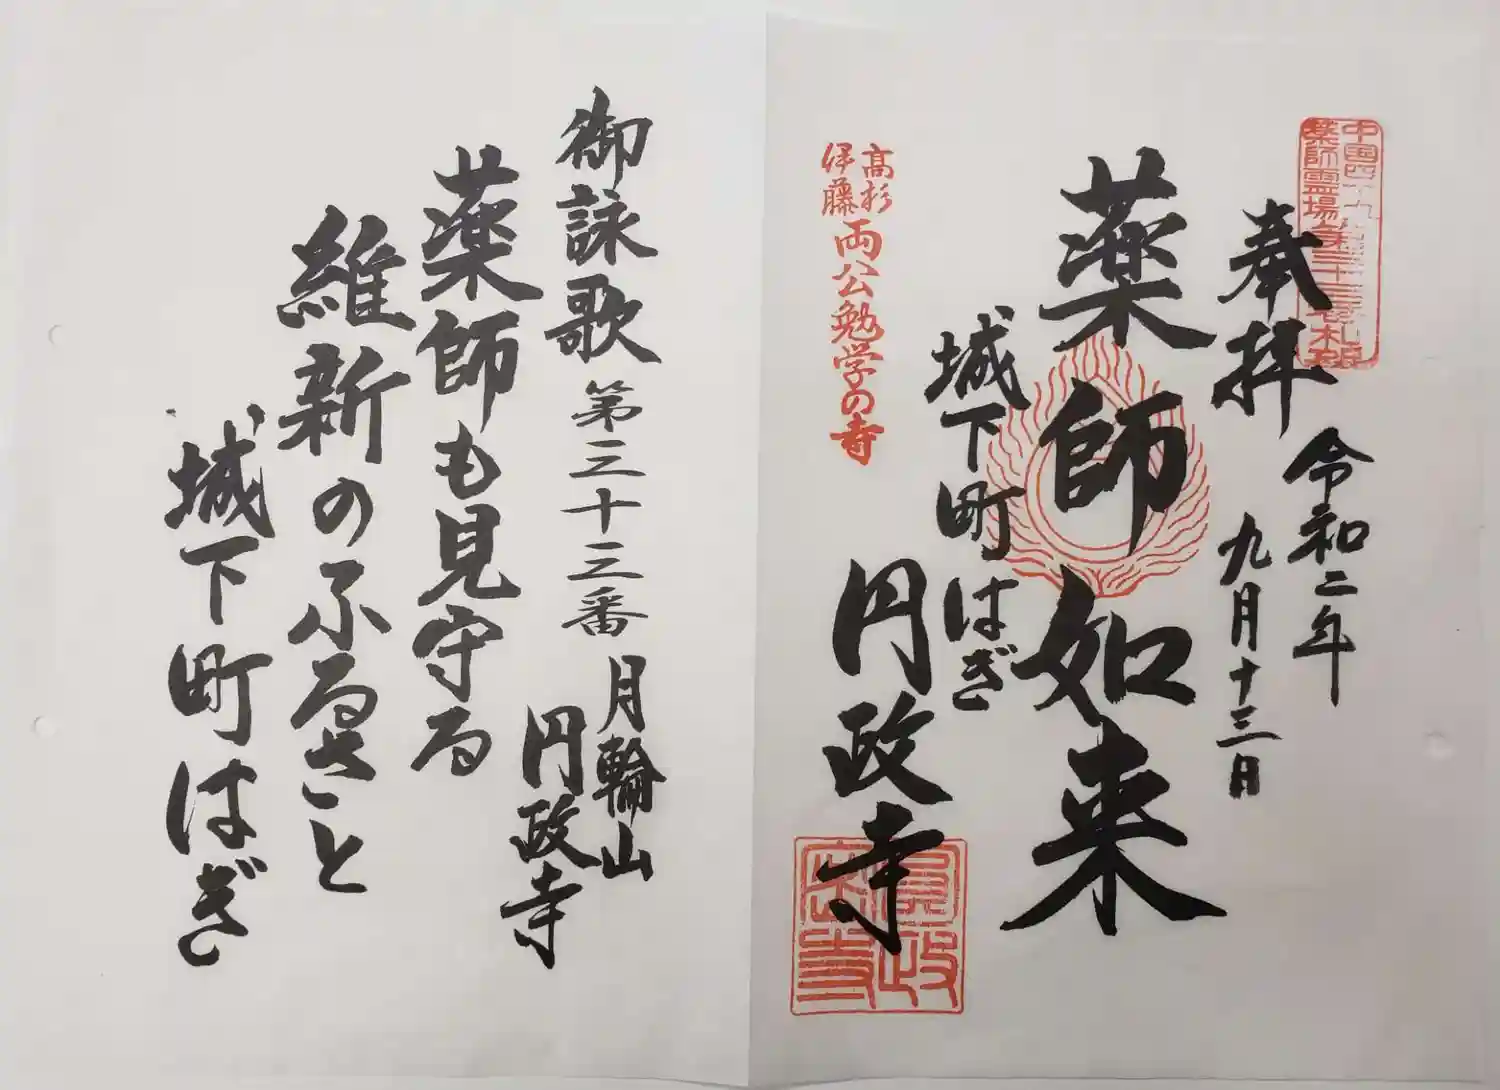 中国四十九
薬師霊場第三十三番札所
奉拝
令和二年
九月十三日
薬師如来
城下町はぎ
円政寺
高杉
伊藤
両公勉学の寺
御詠歌 第三十三番 月輪山
円政寺
薬師も見守る
維新のふるさと
城下町はぎ